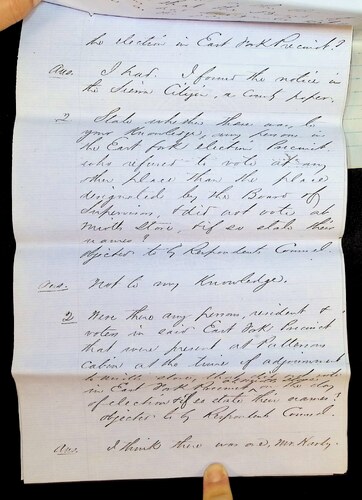 the election in East Fork Precinct?
Ans. I had. I found the notice in
the Inyo Citizen, a County paper.
Q State whether there was, to
your Knowledge, any persons in
the East fork election Precinct
who refused to vote at any
other place than the place
designated by the Board of
Supervisors, & did not vote at
Mill Store, & if so state their
names?
objected to by Respondents Counsel.
Ans. Not to my Knowledge.
Q Were there any persons, resident &
voters in said East Fork Precinct
that were present at Pattersons
Cabin at the time of adjournment
in East Fork Precinct, on the day
of election & if so state their names?
objected to by Respondents Counsel.
Ans. I think there was one, Mr.